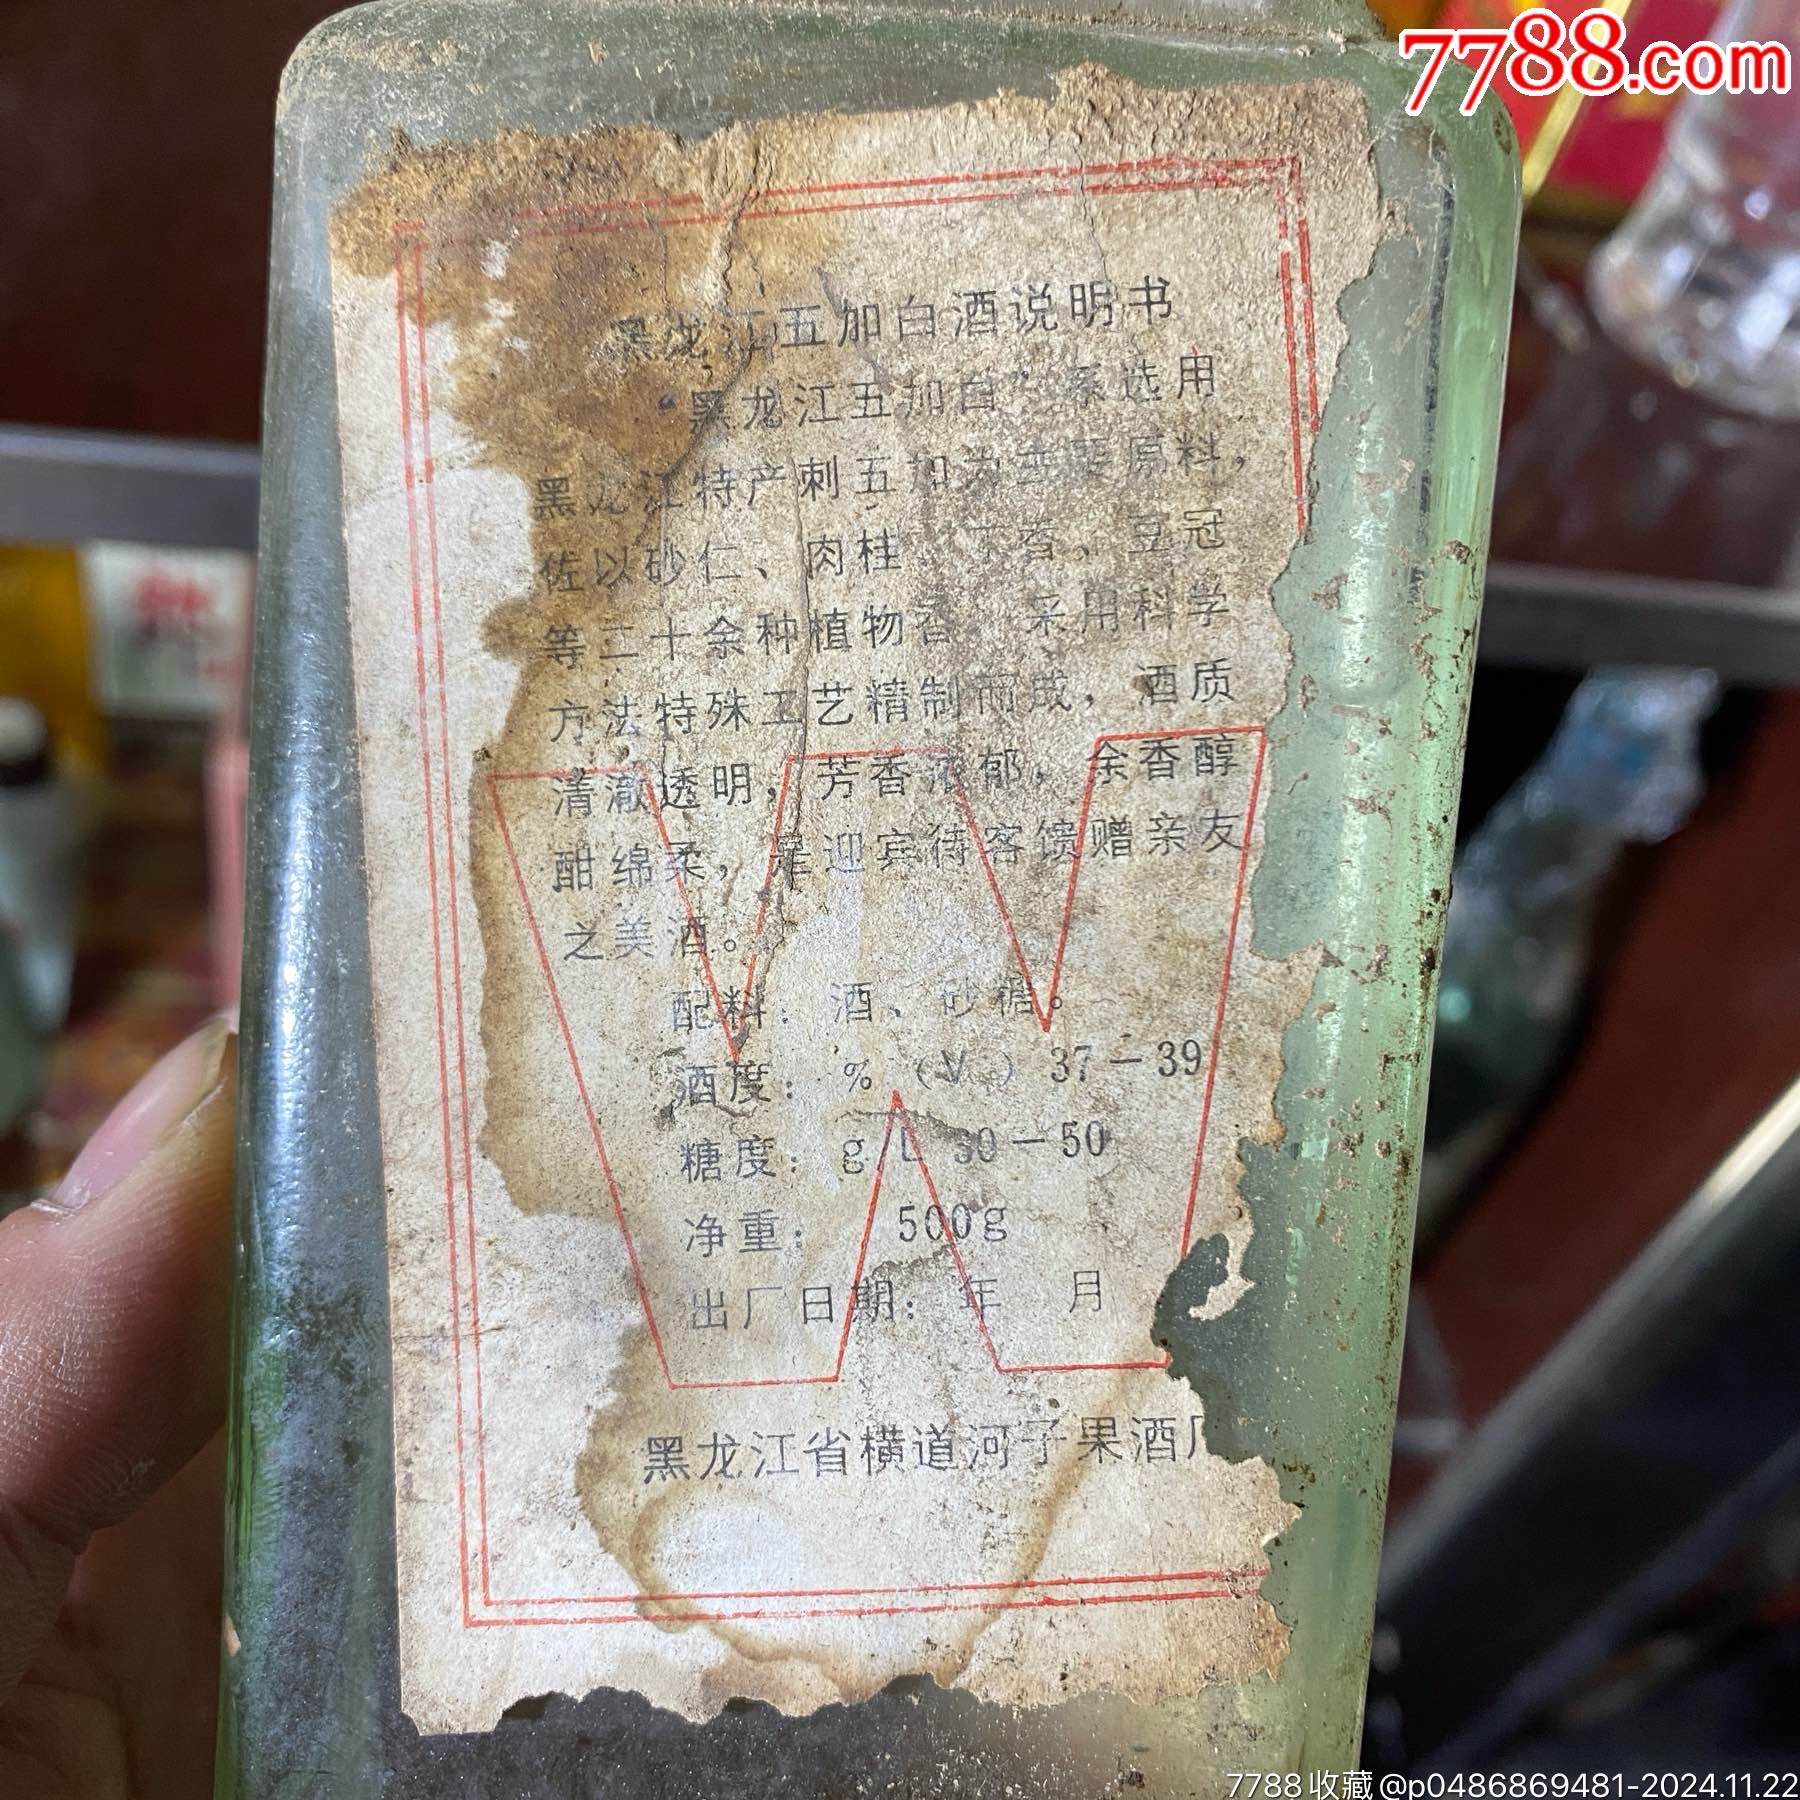 7788.com
黑龙江五加白酒说明书
“黑龙江五加白”系选用
黑龙江特产刺五加为主要原料，
佐以砂仁、肉桂、丁香、豆冠
等二十余种植物香、采用科学
方法特殊工艺精制而成，酒质
清澈透明，芳香浓郁，余香醇
酣绵柔，是迎宾待客馈赠亲友
之美酒。
配料：酒、砂糖。
酒度：%（V）37—39
糖度：g/L 30—50
净重：500g
出厂日期：年 月
黑龙江省横道河子果酒厂
7788收藏@p0486869481-2024.11.22